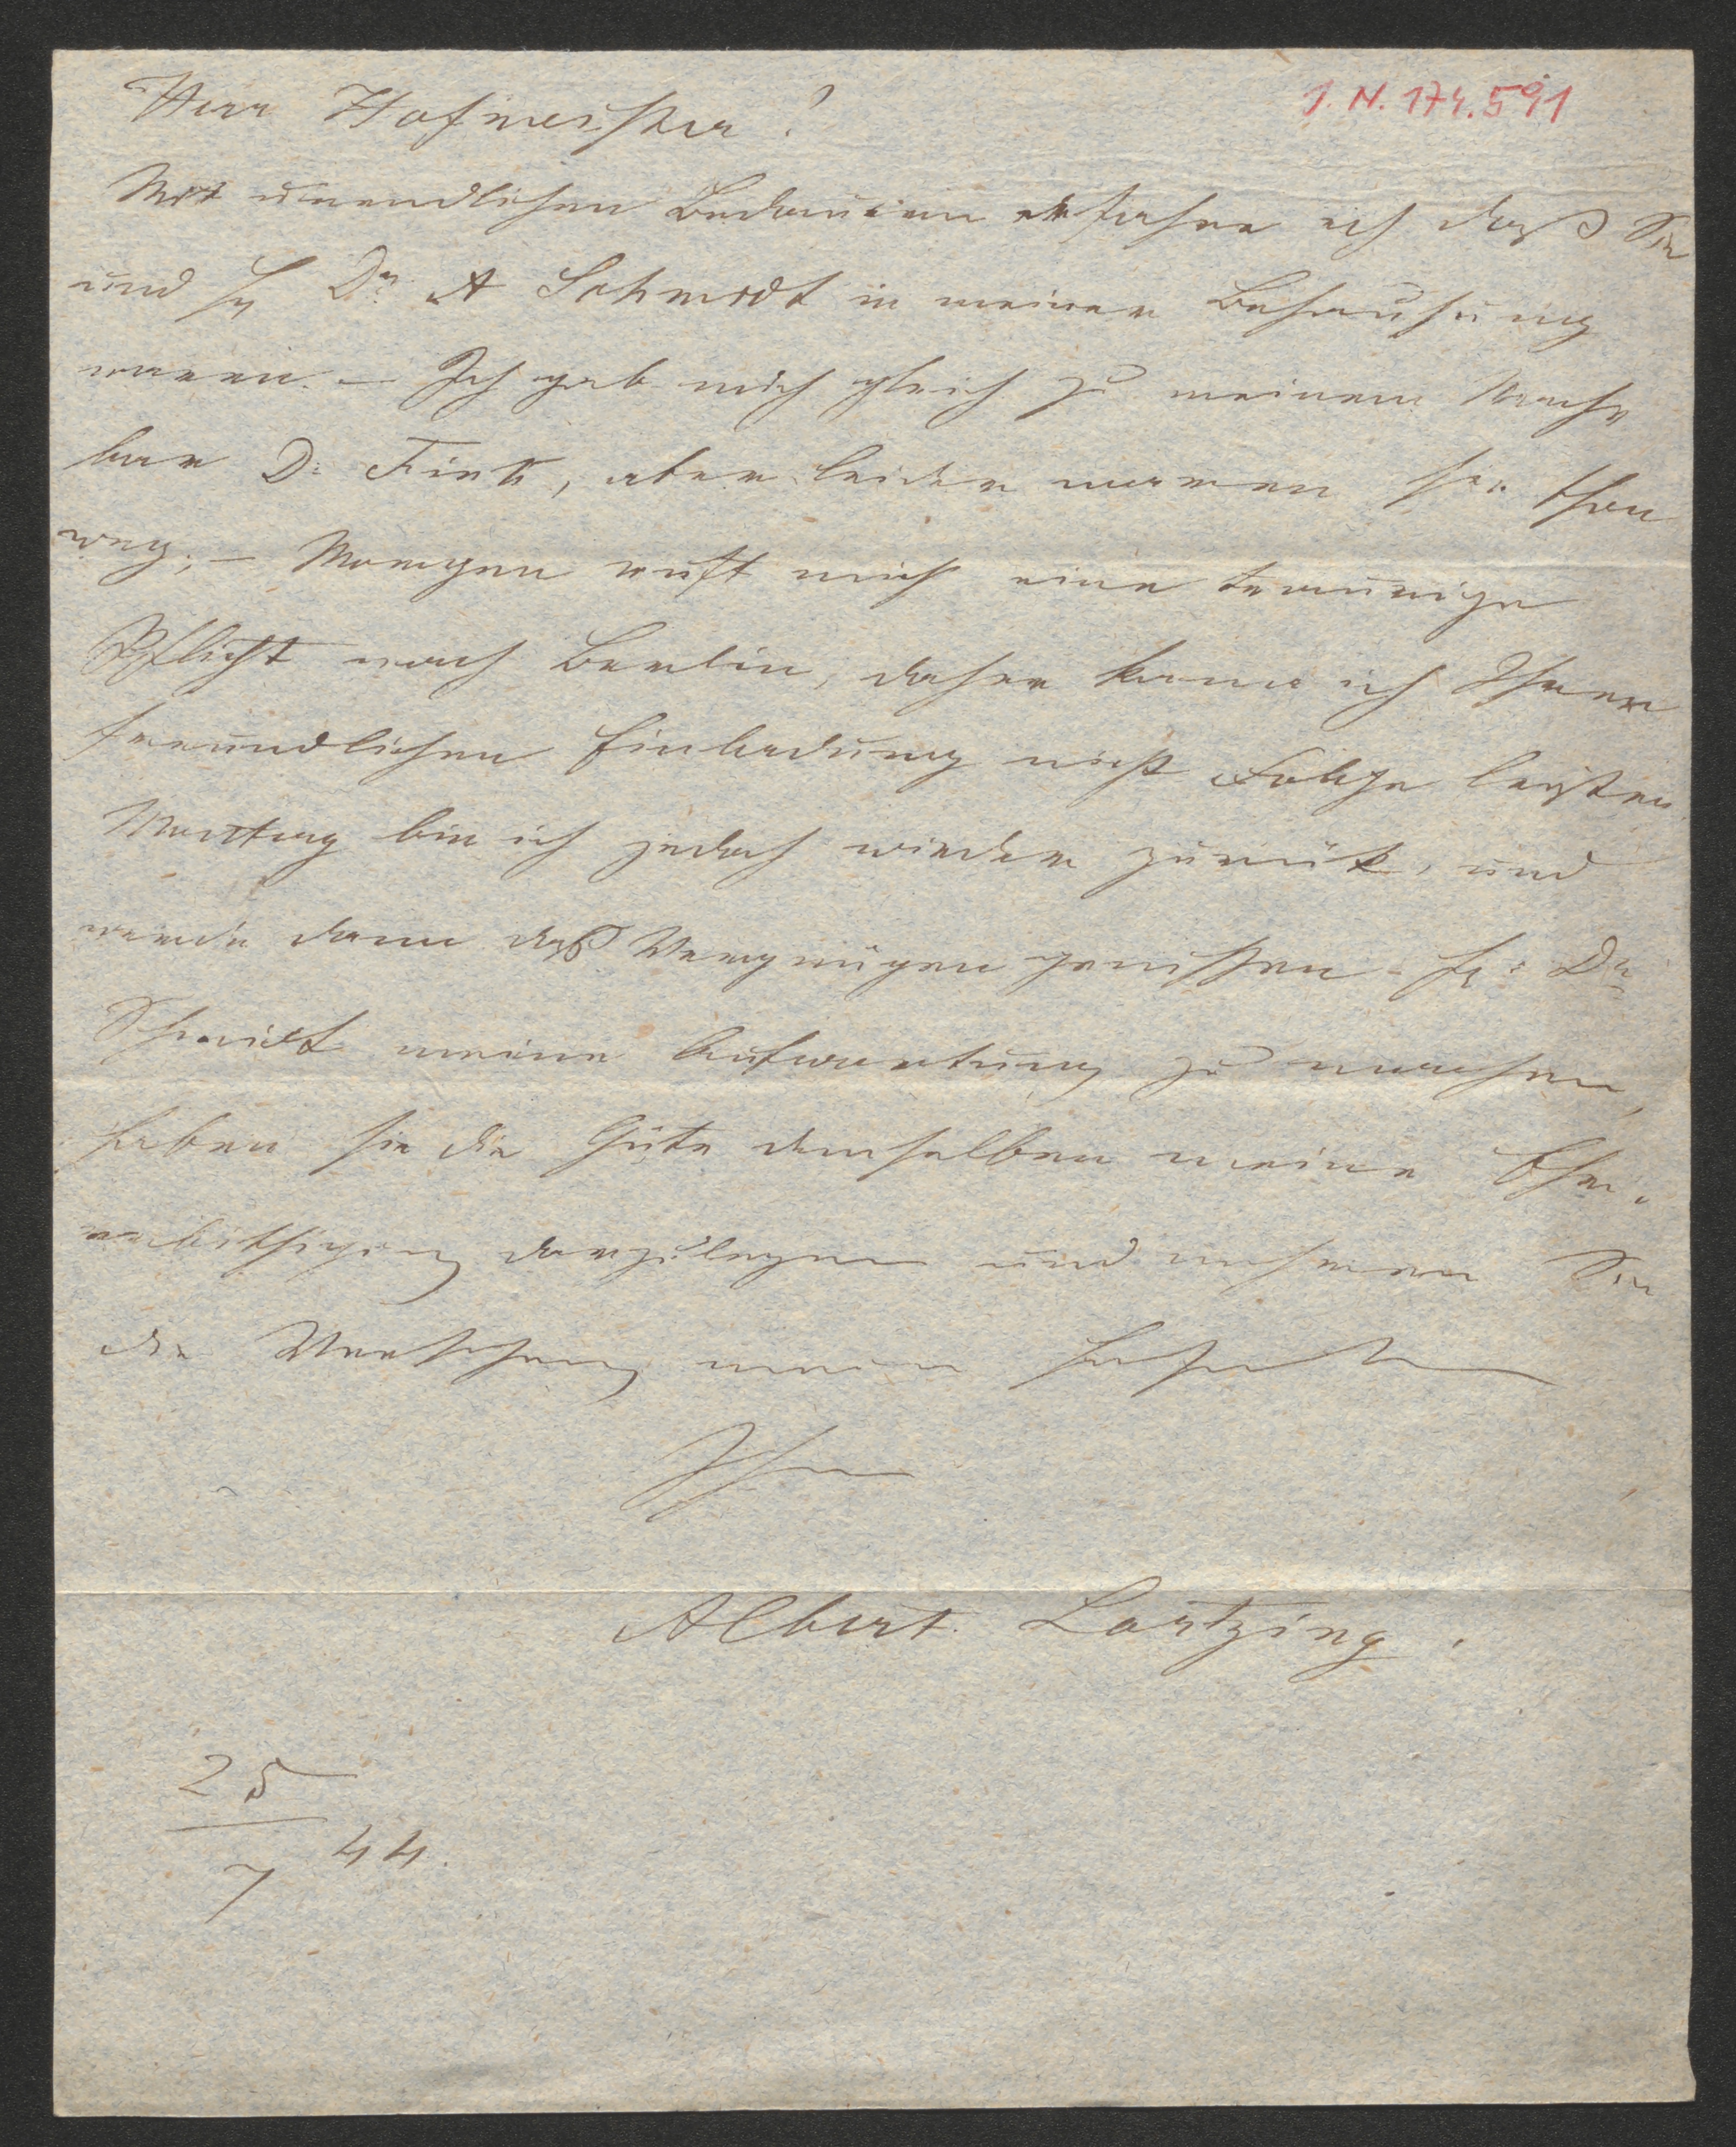 Herr Hofmeister!
J. N. 174.591
Mit unendlichen Bedauern erfahre ich daß Sie
und H Dr. A Schmidt in meiner Behausung
waren. – Ich gab mich gleich zu meinem Nach
bar D: Fink, aber leider waren Sie schon
weg; – Morgen ruft mich eine traurige
Pflicht nach Berlin, daher kann ich Ihrer
freundlichen Einladung nicht Folge leisten
Montag bin ich jedoch wieder zurük, und
werde dann daß Vergnügen genissen H: Dr
Schmidt meine Aufwartung zu machen,
haben sie die Güte demselben meine Ehr-
erbithigung darzulegen und nehmen Sie
die Versichrung meiner Hochacht
Ihr
Albert Lortzing.
25
7 44.